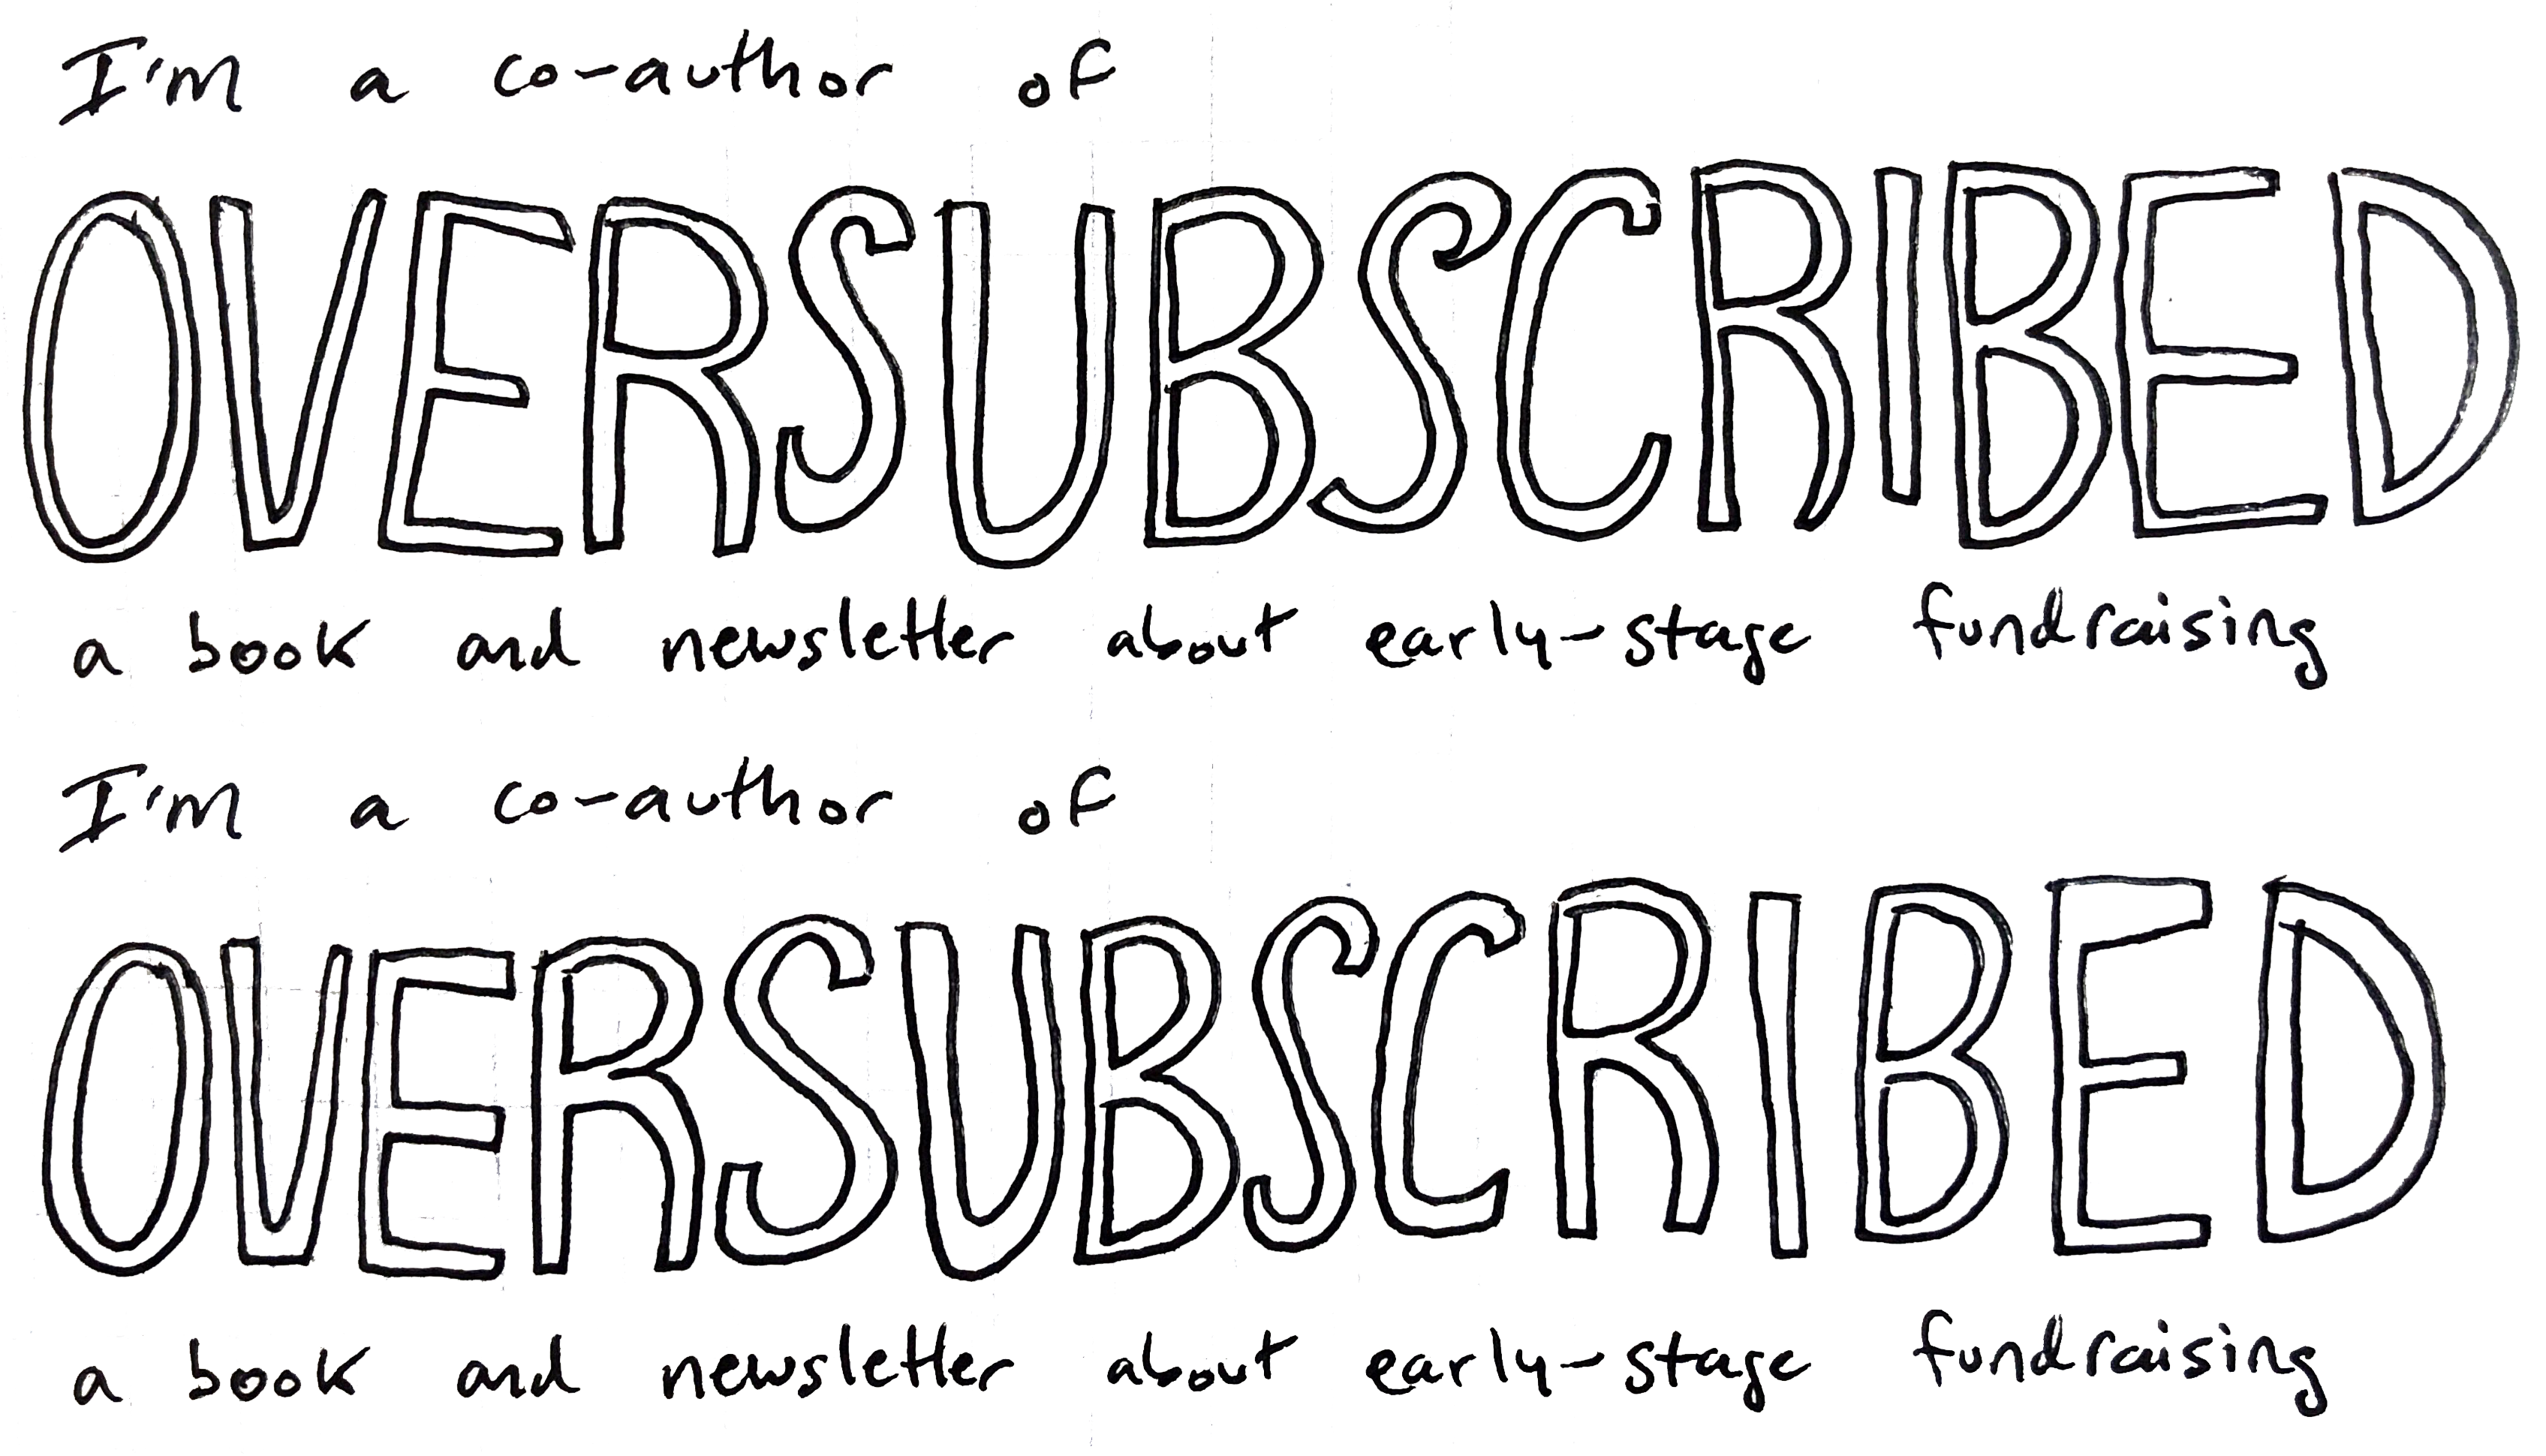 I'm a co-author of
OVERSUBSCRIBED
a book and newsletter about early-stage fundraising
I'm a co-author of
OVERSUBSCRIBED
a book and newsletter about early-stage fundraising